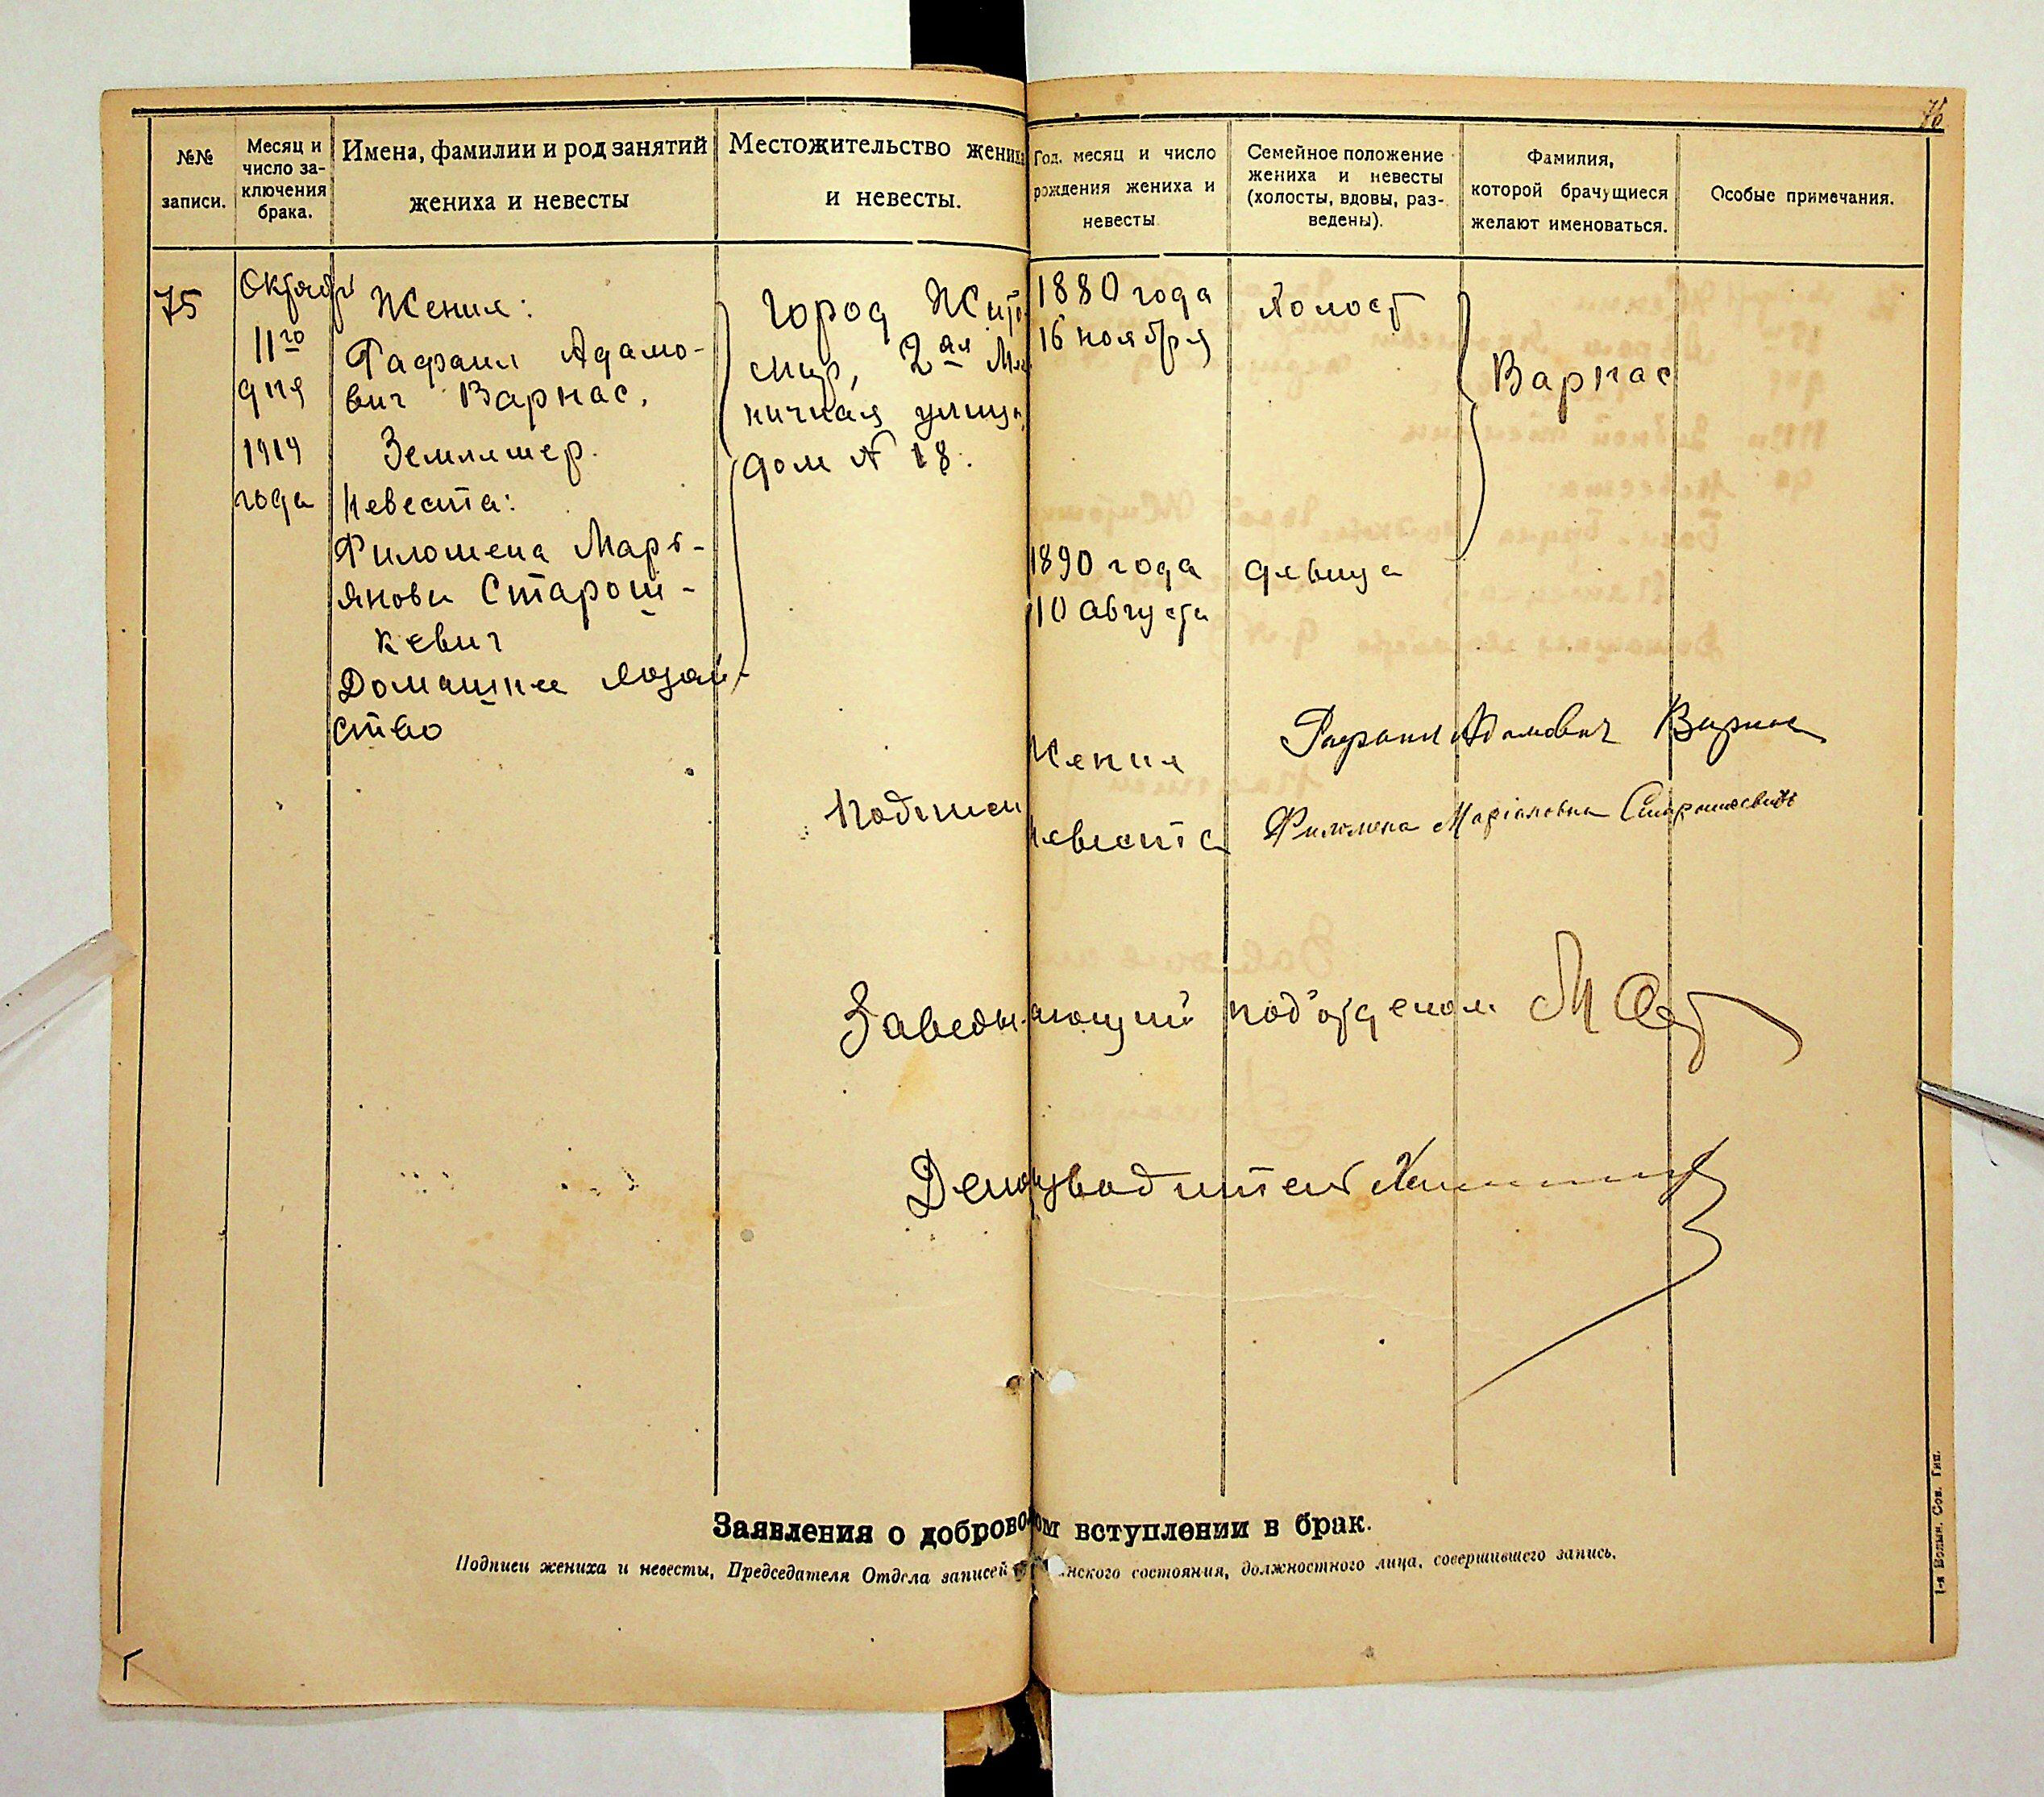 75
№№
записи.
Месяц и
число за-
ключения
брака.
Имена, фамилии и род занятий
жениха и невесты
Местожительство жениха
и невесты.
Год, месяц и число
рождения жениха и
невесты
Семейное положение
жениха и невесты
(холосты, вдовы, раз-
ведены).
Фамилия,
которой брачущиеся
желают именоваться.
Особые примечания.
75
Октябр
11го
дня
1919
года
Жених:
Рафаил Адамо-
вич Варнас.
Землемер.
Невеста:
Филомена Марь-
янови Старош-
кевич
Домашнее хозяй-
ство
Город Жито-
мир, 2ая
ничная улица
дом № 18.
1880 года
16 ноября
холост
Варнас
1890 года
10 августа
девица
Подписи
Жених
Рафаил Адамович Варнас
Невеста
Филомена Маріановна Старошкевичъ
Заведывающий под'отделом
Делопроизводитель
Заявления о добровольном вступлении в брак.
Подписи жениха и невесты, Председателя Отдела записей гражданского состояния, должностного лица, совершившего запись.
1-я Волын. Сов. Тип.